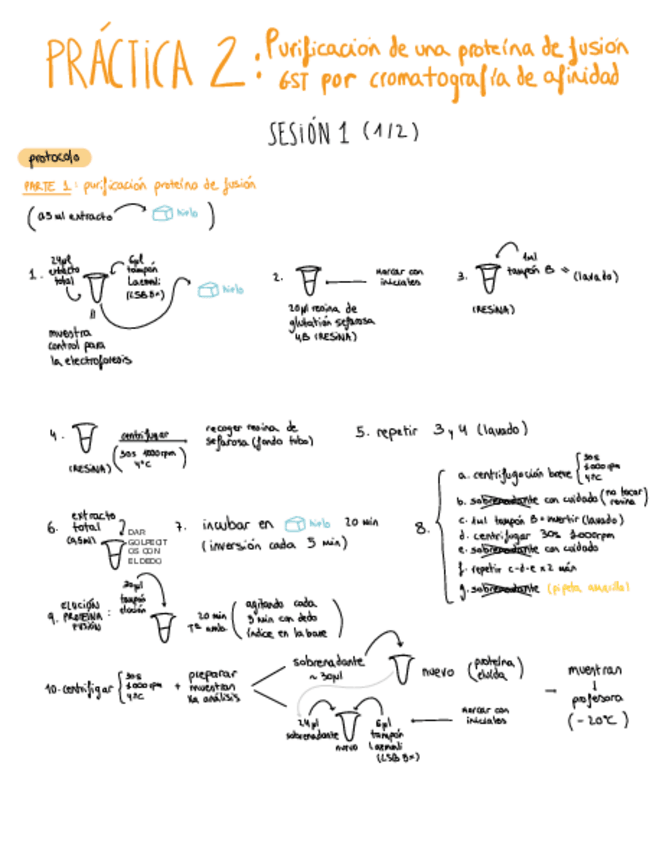 PRÁCTICA 2: Purificación de una proteína de fusión
GST por cromatografía de afinidad
SESIÓN 1 (1/2)
protocolo
PARTE 1: purificación proteína de fusión
(0,5 ml extracto hielo)
1. 24µl extracto total
6µl tampón Laemmli (LSB 5x)
hielo
muestra
control para
la electroforesis
2. marcar con
iniciales
20µl resina de
glutatión sefarosa
4B (RESINA)
3. 1ml
tampón B = (lavado)
(RESINA)
4. (RESINA)
centrifugar
(30s 1000rpm
4ºC)
recoger resina de
sefarosa (fondo tubo)
5. repetir 3 y 4 (lavado)
6. extracto
total
(0,5ml)
DAR
GOLPECIT
OS CON
EL DEDO
7. incubar en hielo 20 min
(inversión cada 5 min)
8.
a. centrifugación breve { 30s
1000rpm
4ºC
b. sobrenadante con cuidado (no tocar
resina)
c. 1ml tampón B + invertir (lavado)
d. centrifugar 30s 1000rpm
e. sobrenadante con cuidado
f. repetir c-d-e x2 más
g. sobrenadante (pipeta amarilla)
9. ELUCIÓN
PROTEINA
FUSIÓN :
30µl
tampón
elución
20 min
Tª amb.
(agitando cada
5 min con dedo
índice en la base)
10. centrifugar { 30s
1000rpm
4ºC
+ preparar
muestras
xa análisis
sobrenadante
~ 30µl
nuevo (proteína
eluida)
24µl
sobrenadante
nuevo
6µl
tampón
Laemmli
(LSB 5x)
marcar con
iniciales
muestras
profesora
(-20ºC)